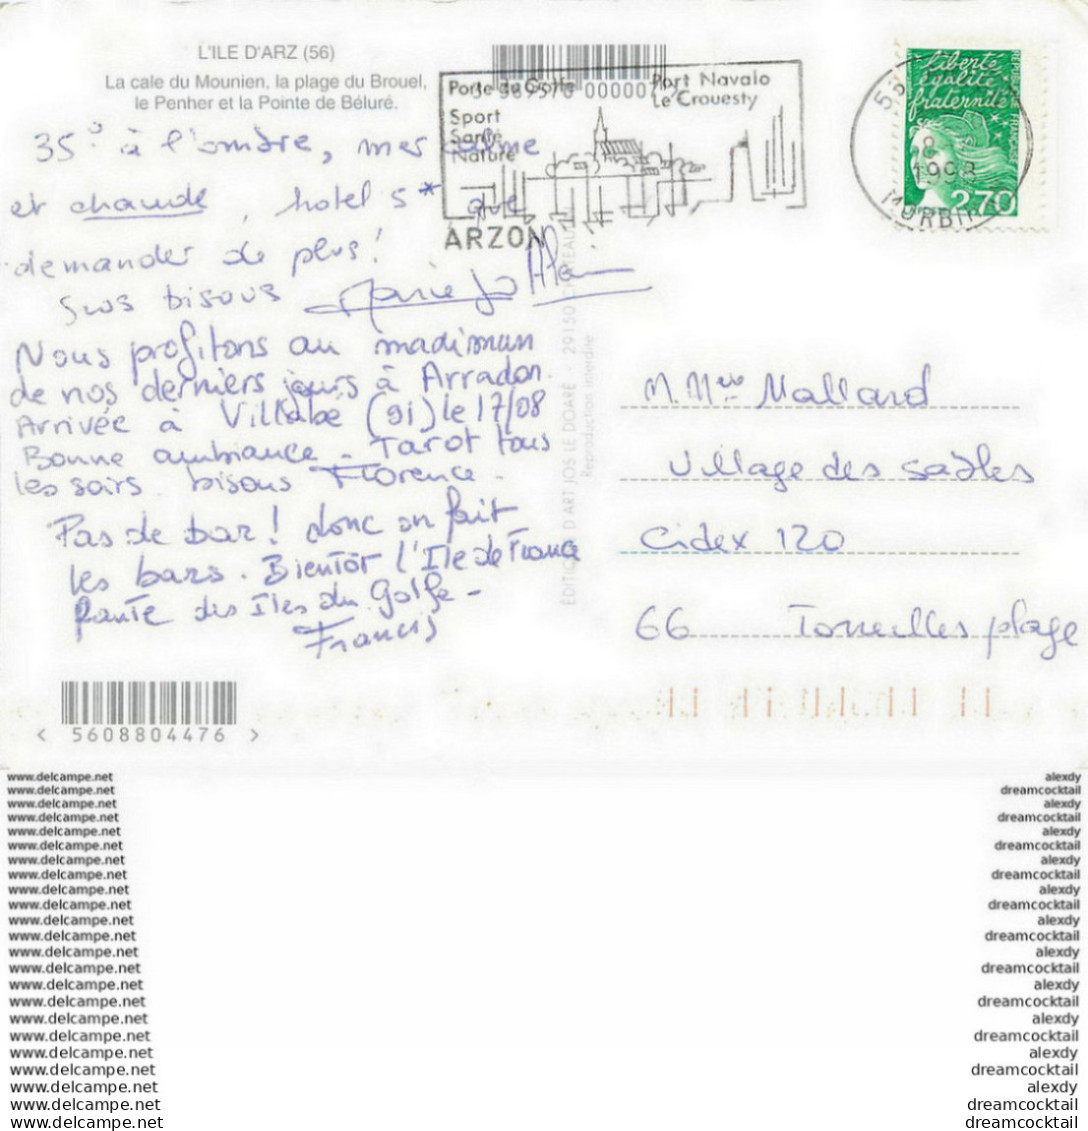 L'ILE D'ARZ (56)
La cale du Mounien, la plage du Brouel,
le Penher et la Pointe de Béluré.
Porte du Golfe
Sport
Santé
Nature
Port Navalo
Le Crouesty
ARZON
liberté
égalité
fraternité
REPUBLIQUE FRANÇAISE
2,70
8
1998
MORBIHAN
35° à l'ombre, mer calme
et chaude, hotel 5* que
demander de plus!
Gros bisous Marie Jo Alain
Nous profitons au maximun
de nos derniers jours à Arradon.
Arrivée à Villabé (91) le 17/08
Bonne ambiance - Tarot tous
les soirs. bisous Florence.
Pas de bar! donc on fait
les bars. Bientôt l'Ile de France
faute des Iles du Golfe -
Francis
EDITIONS D'ART JOS LE DOARÉ - 29150 CHATEAULIN
Reproduction interdite
M. Mme Mallard
Village des sables
Cidex 120
66 Torreilles plage
< 5608804476 >
www.delcampe.net alexdy
www.delcampe.net dreamcocktail
www.delcampe.net alexdy
www.delcampe.net dreamcocktail
www.delcampe.net alexdy
www.delcampe.net dreamcocktail
www.delcampe.net alexdy
www.delcampe.net dreamcocktail
www.delcampe.net alexdy
www.delcampe.net dreamcocktail
www.delcampe.net alexdy
www.delcampe.net dreamcocktail
www.delcampe.net alexdy
www.delcampe.net dreamcocktail
www.delcampe.net alexdy
www.delcampe.net dreamcocktail
www.delcampe.net alexdy
www.delcampe.net dreamcocktail
www.delcampe.net alexdy
www.delcampe.net dreamcocktail
www.delcampe.net alexdy
www.delcampe.net dreamcocktail
www.delcampe.net dreamcocktail